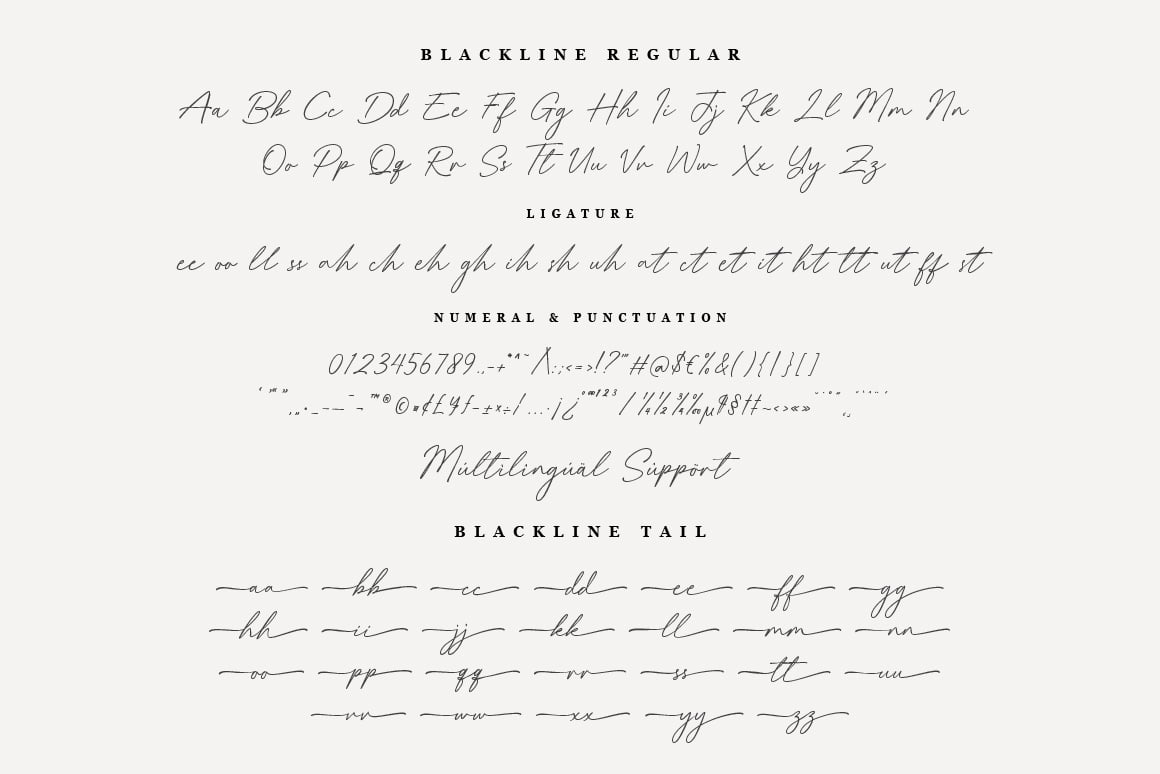 BLACKLINE REGULAR
Aa Bb Cc Dd Ee Ff Gg Hh Ii Jj Kk Ll Mm Nn
Oo Pp Qq Rr Ss Tt Uu Vv Ww Xx Yy Zz
LIGATURE
ee oo ll ss ah ch eh gh ih sh uh at ct et it ht tt ut ff st
NUMERAL & PUNCTUATION
0123456789.,-+*^~/\:;<=>!?'"#@$€%&(){|}[]
‘’“”‚„•_–—¯¬™®©¤¢£¥ƒ-±×÷/…·¡¿ºª¹²³/¼½¾‰µ¶§†‡~‹›«»
Múltilingúäl Súppórt
BLACKLINE TAIL
aa bb cc dd ee ff gg
hh ii jj kk ll mm nn
oo pp qq rr ss tt uu
vv ww xx yy zz